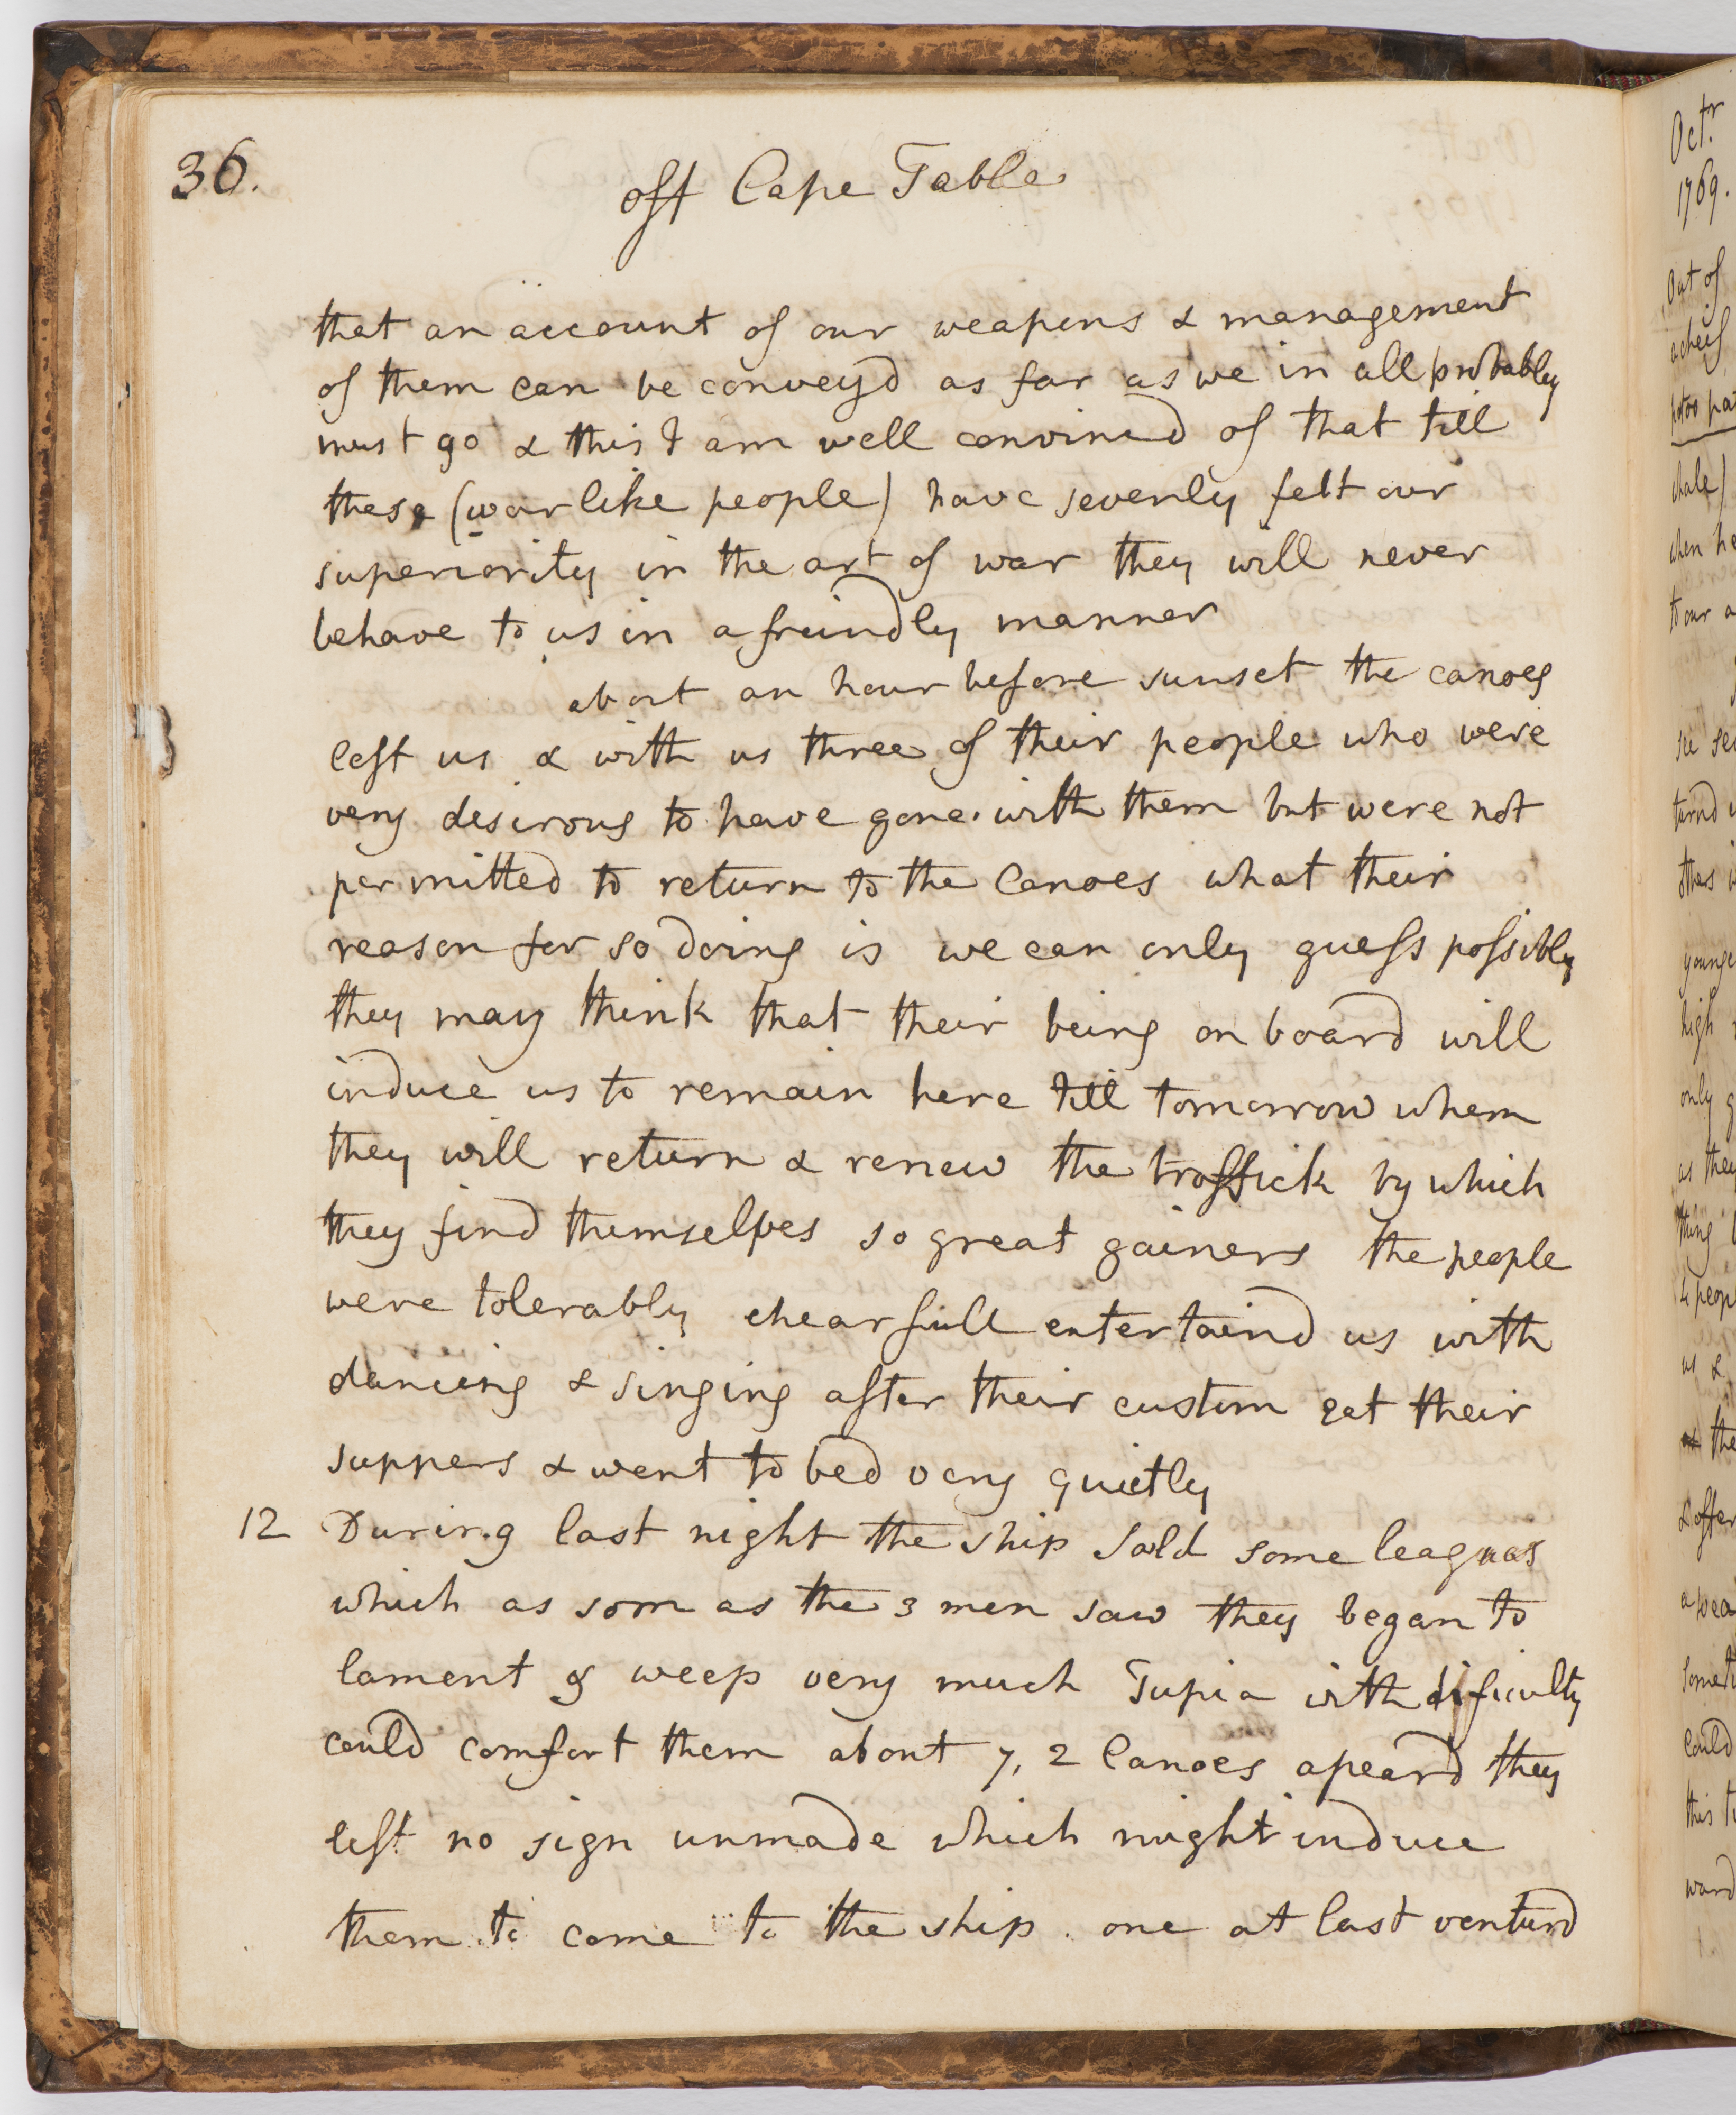 36.
off Cape Table
that an account of our weapens & management
of them can be convey'd as far as we in all probably
must go & this I am well convincd of that till
these (warlike people) have severly felt our
superiority in the art of war they will never
behave to us in a freindly manner
about an hour before sunset the canoes
left us & with us three of their people who were
very desirous to have gone with them but were not
permitted to return to the Canoes what their
reason for so doing is we can only guess possibly
they may think that their being on board will
induce us to remain here till tomorrow when
they will return & renew the traffick by which
they find themselves so great gainers the people
were tolerably chearfull entertaind us with
dancing & singing after their custom eat their
suppers & went to bed very quietly
12 During last night the ship sald some leagues
which as soon as the 3 men saw they began to
lament & weep very much Tupia with dificulty
could comfort them about 7, 2 Canoes apeard they
left no sign unmade which might induce
them to come to the ship. one at last venturd
Octr
1769.
Out of
a cheif
whale)
when he
to our a
turnd
others
younge
high
only g
as they
thing
4 peop
us &
the
& after
a wea
could
this
ward